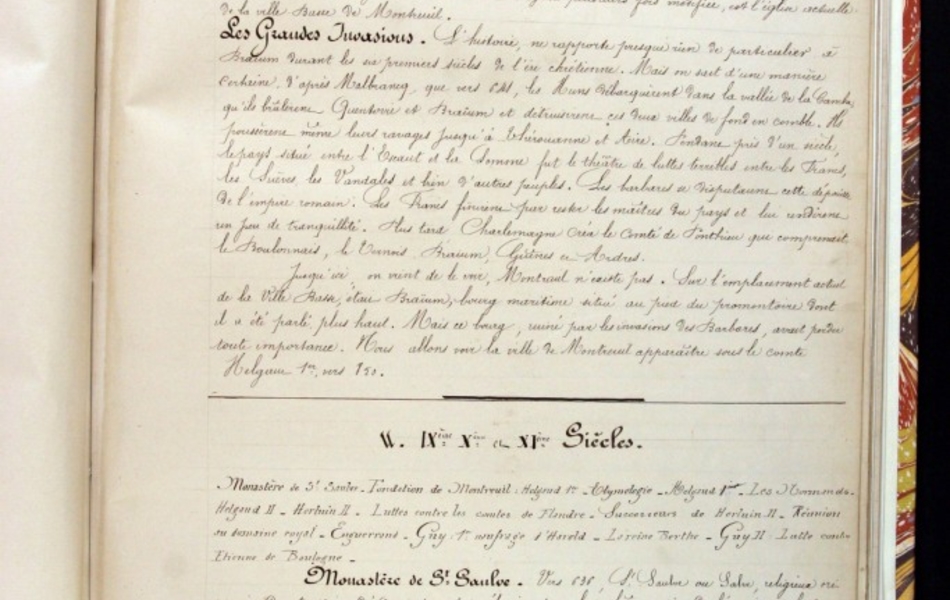 de la ville Basse de Montreuil.
plusieurs fois modifiée, est l'église actuelle
Les Grandes Invasions. L'histoire, ne rapporte presque rien de particulier à
Braïum durant les six premiers siècles de l'ère chrétienne. Mais on sait d'une manière
certaine, d'après Malbrancq, que vers les Huns débarquèrent dans la vallée de la Canche,
qu'ils brûlèrent Quentovic et Braïum et détruisirent ces deux villes de fond en comble. Ils
poussèrent même leurs ravages jusqu'à Thérouanne et Aire. Pendant près d'un siècle,
le pays situé entre l'Escaut et la Somme fut le théâtre de luttes terribles entre les Francs,
les Suèves, les Vandales et bien d'autres peuples. Les barbares se disputaient cette dépouille
de l'empire romain. Les Francs finirent par rester les maîtres du pays et lui rendirent
un peu de tranquillité. Plus tard Charlemagne créa le Comté de Ponthieu qui comprenait
le Boulonnais, le Vernois, Braïum, Guînes et Ardres.
Jusqu'ici, on vient de le voir, Montreuil n'existe pas. Sur l'emplacement actuel
de la Ville Basse, était Braïum, bourg maritime situé au pied du promontoire dont
il a été parlé plus haut. Mais ce bourg, ruiné par les invasions des Barbares, avait perdu
toute importance. Nous allons voir la ville de Montreuil apparaître sous le comte
Helgaud 1er, vers
IXème Xème et XIème Siècles.
Monastère de St Saulve - Fondation de Montreuil : Helgaud 1er - Etymologie - Helgaud 1er - Les Normands -
Helgaud II - Herluin II - Luttes contre les comtes de Flandre - Successeurs de Herluin II - Réunion
au domaine royal - Enguerrand - Guy 1er naufrage d'Harold - La reine Berthe - Guy II : Lutte contre
Etienne de Boulogne -
Monastère de St Saulve - Vers St Saulve ou Salve, religieux